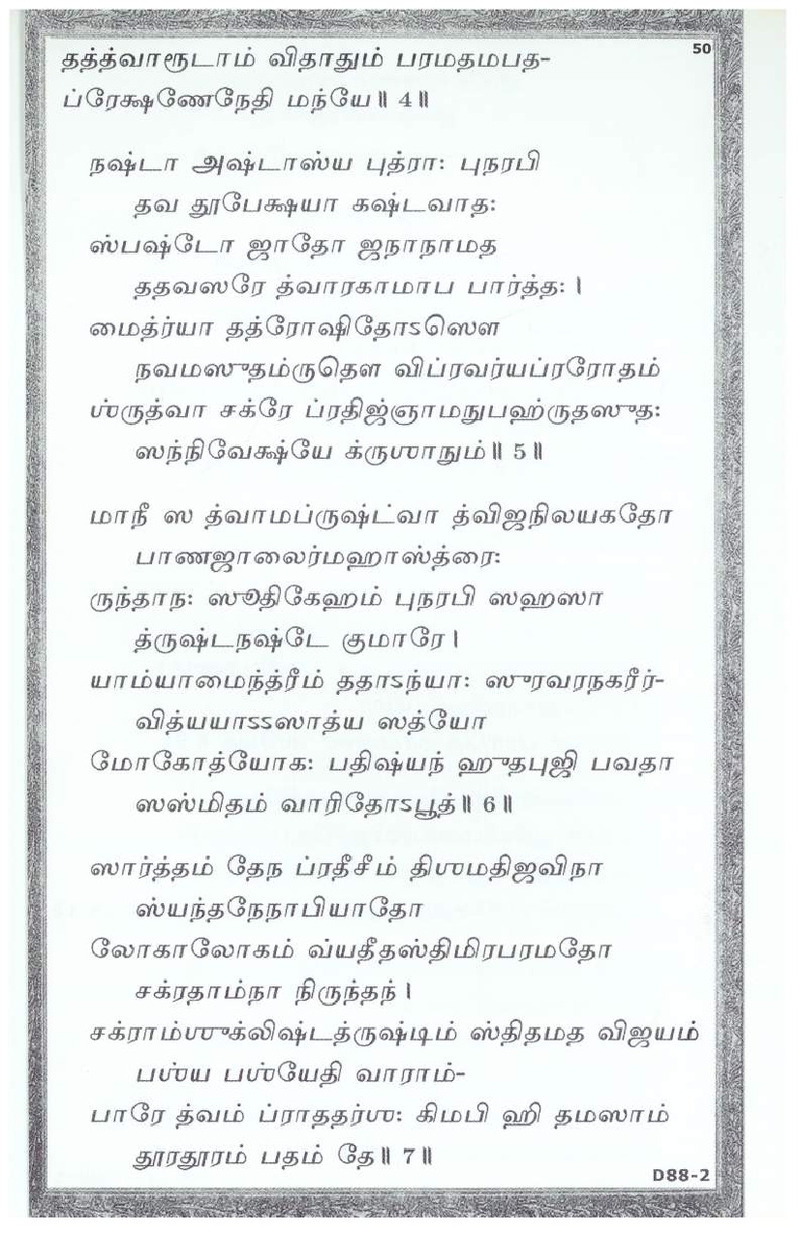 50
தத்த்வாரூடாம் விதாதும் பரமதமபத-
ப்ரேக்ஷணேநேதி மந்யே॥ 4॥
நஷ்டா அஷ்டாஸ்ய புத்ரா: புநரபி
தவ தூபேக்ஷயா கஷ்டவாத:
ஸ்பஷ்டோ ஜாதோ ஜநாநாமத
ததவஸரே த்வாரகாமாப பார்த்த:।
மைத்ர்யா தத்ரோஷிதோऽஸௌ
நவமஸுதம்ருதௌ விப்ரவர்யப்ரரோதம்
ஶ்ருத்வா சக்ரே ப்ரதிஜ்ஞாமநுபஹ்ருதஸுத:
ஸந்நிவேக்ஷ்யே க்ருஶாநும்॥ 5॥
மாநீ ஸ த்வாமப்ருஷ்ட்வா த்விஜநிலயகதோ
பாணஜாலைர்மஹாஸ்த்ரை:
ருந்தாந: ஸூதிகேஹம் புநரபி ஸஹஸா
த்ருஷ்டநஷ்டே குமாரே।
யாம்யாமைந்த்ரீம் ததாऽந்யா: ஸுரவரநகரீர்-
வித்யயாऽऽஸாத்ய ஸத்யோ
மோகோத்யோக: பதிஷ்யந் ஹுதபுஜி பவதா
ஸஸ்மிதம் வாரிதோऽபூத்॥ 6॥
ஸார்த்தம் தேந ப்ரதீசீம் திஶமதிஜவிநா
ஸ்யந்தநேநாபியாதோ
லோகாலோகம் வ்யதீதஸ்திமிரபரமதோ
சக்ரதாம்நா நிருந்தந்।
சக்ராம்ஶுக்லிஷ்டத்ருஷ்டிம் ஸ்திதமத விஜயம்
பஶ்ய பஶ்யேதி வாராம்-
பாரே த்வம் ப்ராததர்ஶ: கிமபி ஹி தமஸாம்
தூரதூரம் பதம் தே॥ 7॥
D88-2